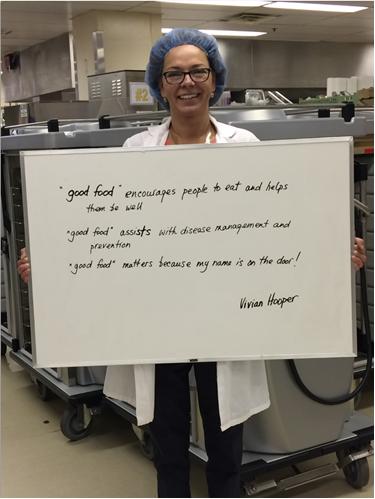 #2
"good food" encourages people to eat and helps
them be well
"good food" assists with disease management and
prevention
"good food" matters because my name is on the door!
Vivian Hooper